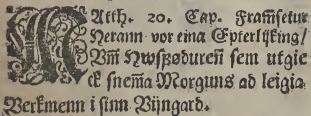 MAtth. 20. Cap. Framsetur
Herann vor eina Epterlijking/
Vm̃ Hwsbøndureñ sem utgie
ck snem̃a Morguns ad leigia
Verkmenn i sinn Vijngard.